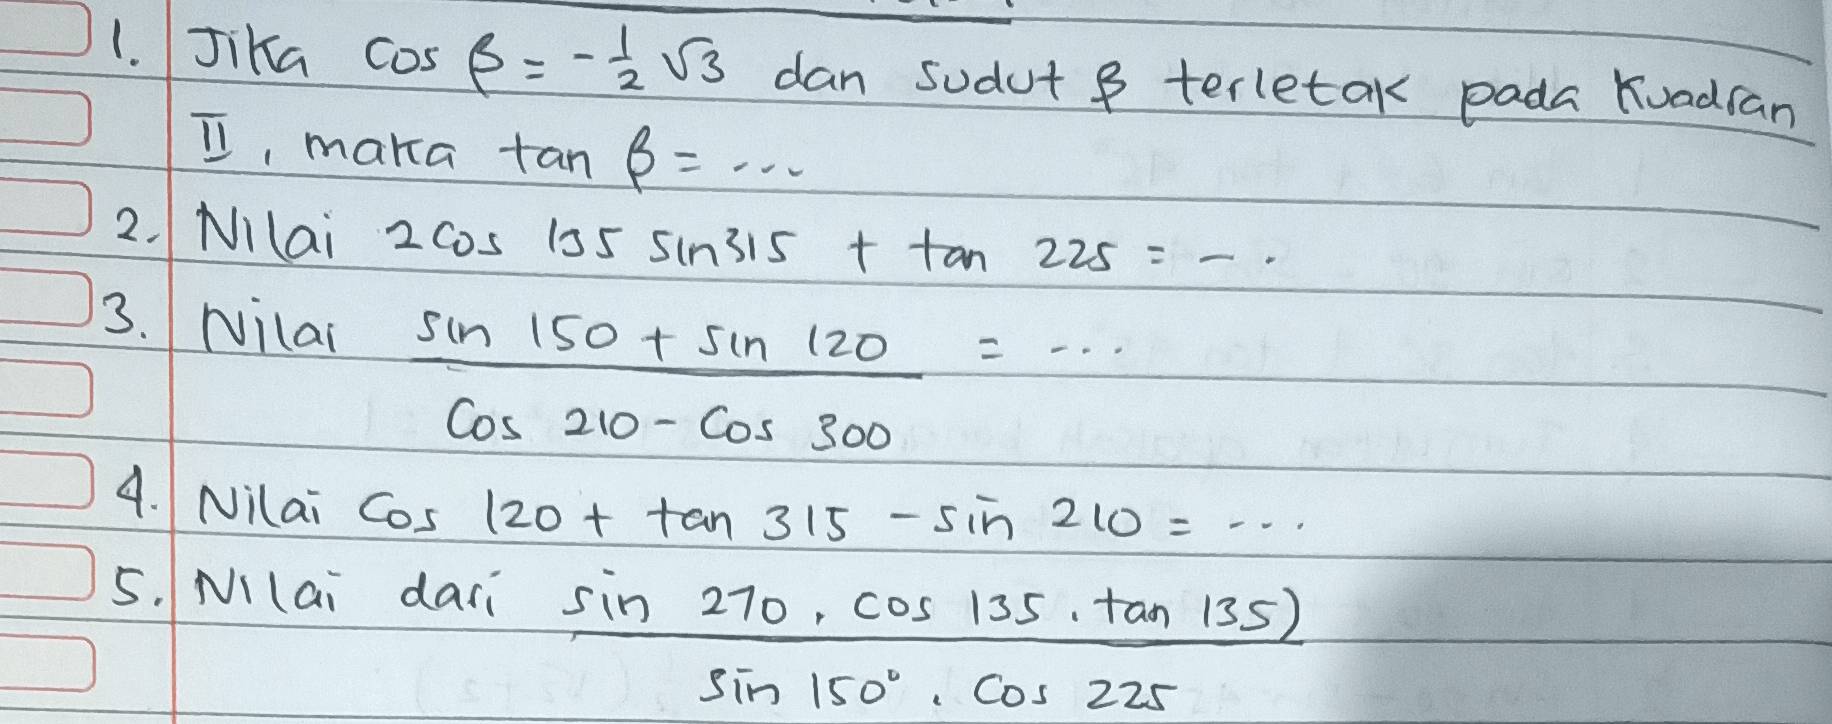 1. Jika cos β = -1/2 √3 dan sudut β terletak pada Kuadran
II, maka tan β = ...
2. Nilai 2 cos 135 sin 315 + tan 225 = ...
3. Nilai sin 150 + sin 120 = ...
Cos 210 - Cos 300
4. Nilai Cos 120 + tan 315 - sin 210 = ...
5. Nilai dari sin 270 . cos 135 . tan 135)
sin 150° . Cos 225